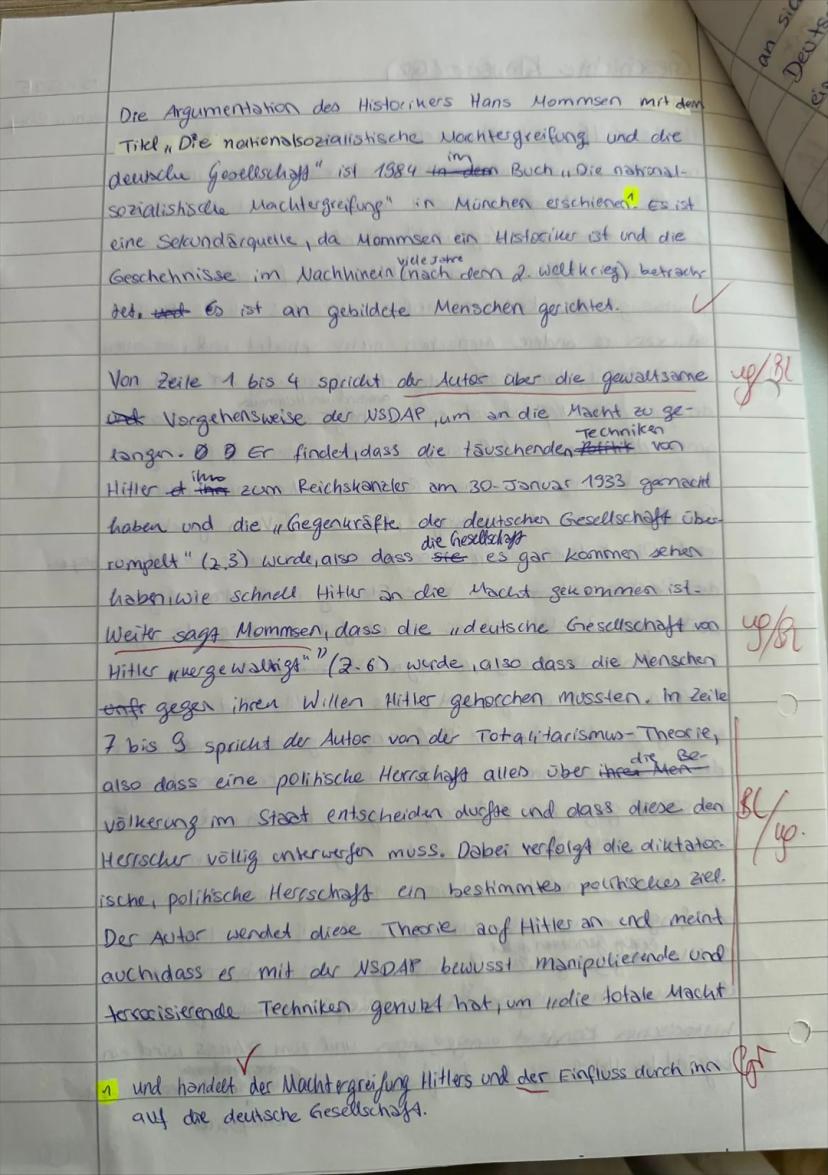 an sic
Deuts
ein
Die Argumentation des Historikers Hans Mommsen mit dem
Titel „Die nationalsozialistische Machtergreifung und die
deutsche Gesellschaft" ist 1984 in dem im Buch „Die national-
sozialistische Machtergreifung" in München erschienen¹. Es ist
eine Sekundärquelle, da Mommsen ein Historiker ist und die
Geschehnisse im Nachhinein (viele Jahre nach dem 2. Weltkrieg) betrach-
tet. und Es ist an gebildete Menschen gerichtet.
Von Zeile 1 bis 4 spricht der Autor über die gewaltsame
und Vorgehensweise der NSDAP, um an die Macht zu ge-
langen. Er findet, dass die täuschenden Politik Techniken von
Hitler ihn zum Reichskanzler am 30. Januar 1933 gemacht
haben und die „Gegenkräfte der deutschen Gesellschaft über-
rumpelt" (Z,3) wurde, also dass sie die Gesellschaft es gar kommen sehen
haben, wie schnell Hitler an die Macht gekommen ist.
Weiter sagt Mommsen, dass die „deutsche Gesellschaft von
Hitler „vergewaltigt"" (Z.6) wurde, also dass die Menschen
gegen ihren Willen Hitler gehorchen mussten. In Zeile
7 bis 9 spricht der Autor von der Totalitarismus-Theorie,
also dass eine politische Herrschaft alles über ihren Men- die Be-
völkerung im Staat entscheiden durfte und dass diese den
Herrscher völlig unterwerfen muss. Dabei verfolgt die diktator-
ische, politische Herrschaft ein bestimmtes politisches Ziel.
Der Autor wendet diese Theorie auf Hitler an und meint
auch, dass es mit der NSDAP bewusst manipulierende und
terrorisierende Techniken genutzt hat, um „die totale Macht
1 und handelt der Machtergreifung Hitlers und der Einfluss durch ihn
auf die deutsche Gesellschaft.
Gr